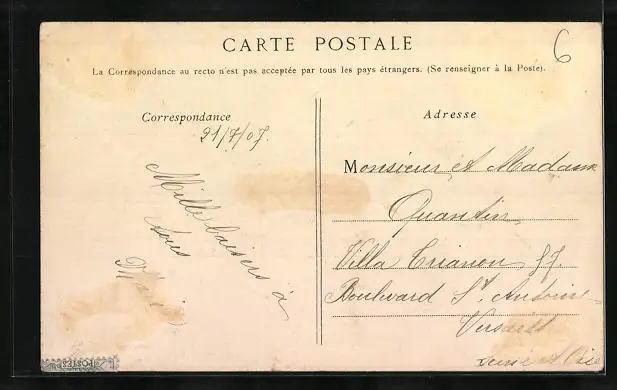 6
CARTE POSTALE
La Correspondance au recto n'est pas acceptée par tous les pays étrangers. (Se renseigner à la Poste).
Correspondance
21/7/07.
Mille baisers à
tous
Adresse
Monsieur et Madame
Quantin
Villa Trianon 57
Boulevard St. Antoine
Versailles
Seine et Oise